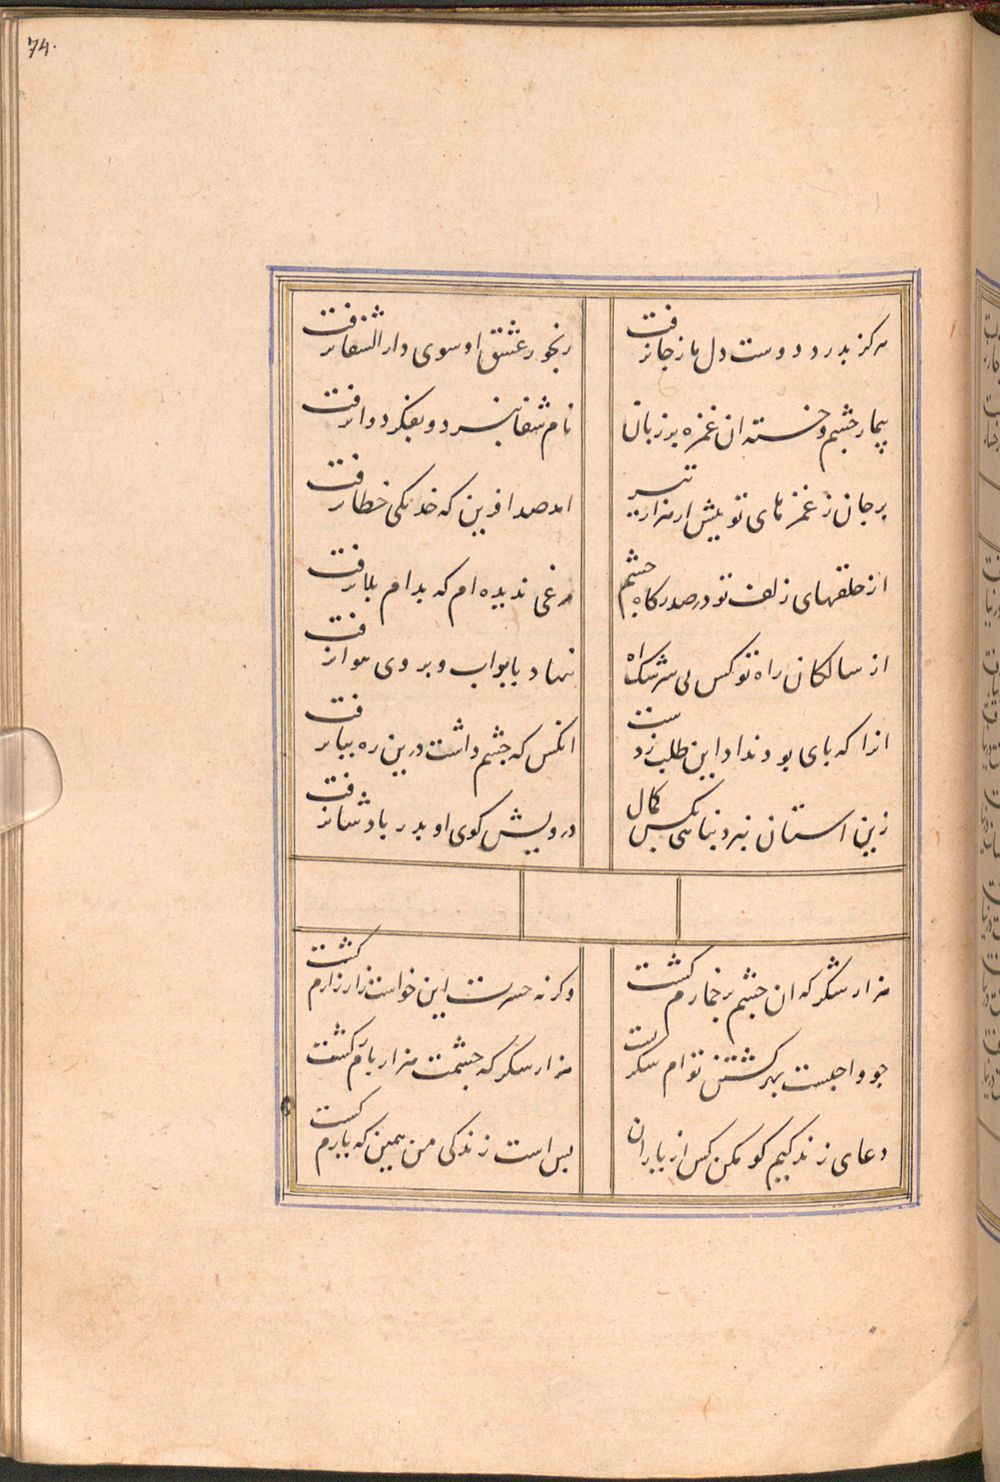 74.
هرکز بدرد دوست دل ما ز جا نرفت
رنجور عشق او سوی دارالشفا نرفت
بیمار چشم و خسته ان غمزه بر زبان
نام شفا نبرد و بفکر دوا نرفت
بر جان ز غمز های تو بیش از هزار تیر
امد صد افرین که خدنکی خطا نرفت
از حلقهای زلف تو در صیدکاه چشم
مرغی ندیده ام که بدام بلا نرفت
از سالکان راه تو کس بی سرشک اه
ننهاد پا بواب و بر وی هوا نرفت
انرا که پای بود نداد این طلب ز دست
انکس که چشم داشت درین ره بپا نرفت
زین استان نبرد پناهی بکس کمال
درویش کوی او بدر پادشا نرفت
هزار شکر که ان چشم پر خمارم کشت
وکر نه حسرت این خواست زار زارم کشت
جو واجبست بهر کشتن توام شکرست
هزار شکر که چشمت هزار بارم کشت
دعای زندکیم کو مکن کس از یاران
بس است زندکی من همین که یارم کشت